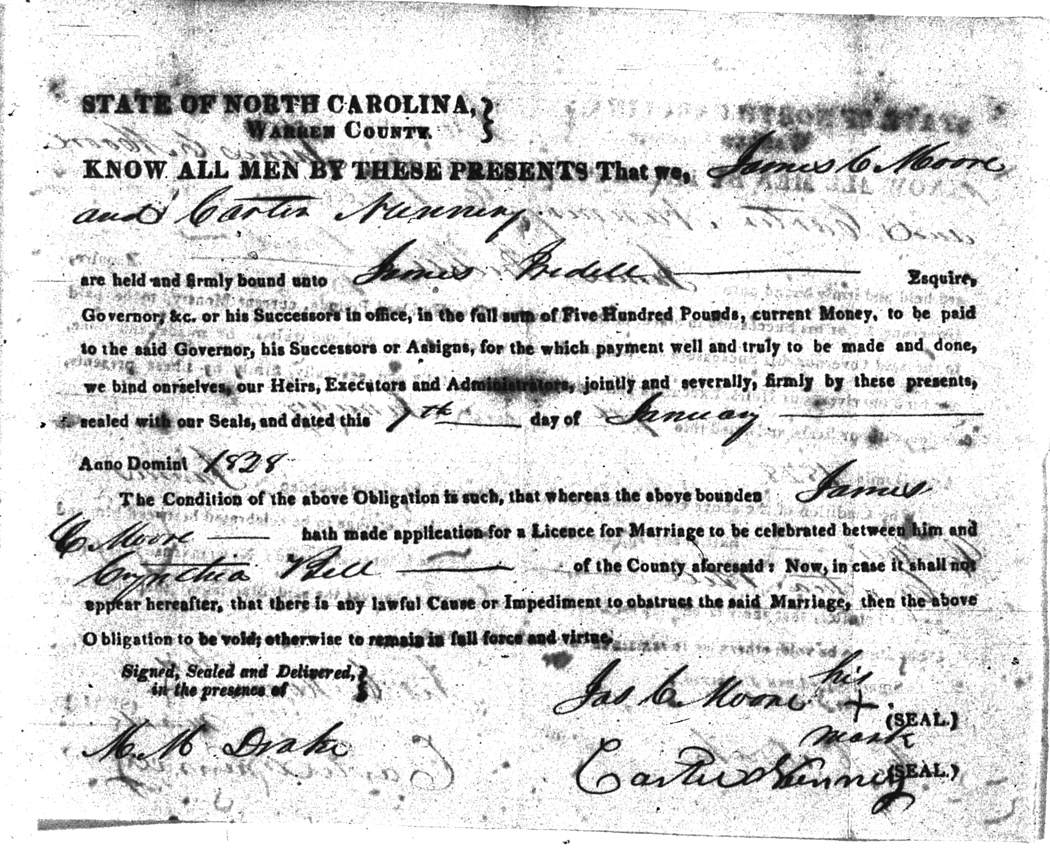 STATE OF NORTH CAROLINA,
WARREN COUNTY.
KNOW ALL MEN BY THESE PRESENTS That we, James C Moore
and Carter Nunnery
are held and firmly bound unto James Iredell Esquire,
Governor, &c. or his Successors in office, in the full sum of Five Hundred Pounds, current Money, to be paid
to the said Governor, his Successors or Assigns, for the which payment well and truly to be made and done,
we bind ourselves, our Heirs, Executors and Administrators, jointly and severally, firmly by these presents,
sealed with our Seals, and dated this 7th day of January
Anno Domini 1828
The Condition of the above Obligation is such, that whereas the above bounden James
C Moore hath made application for a Licence for Marriage to be celebrated between him and
Cynthia Bell of the County aforesaid: Now, in case it shall not
appear hereafter, that there is any lawful Cause or Impediment to obstruct the said Marriage, then the above
Obligation to be void; otherwise to remain in full force and virtue.
Signed, Sealed and Delivered,
in the presence of
Jas C Moore his + mark (SEAL.)
M. M Drake
Carter Nunnery (SEAL.)